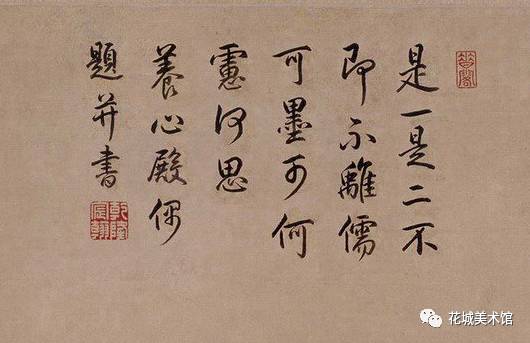 是一是二不
即不離儒
可墨可何
慮何思
養心殿偶
題并書
花城美术馆